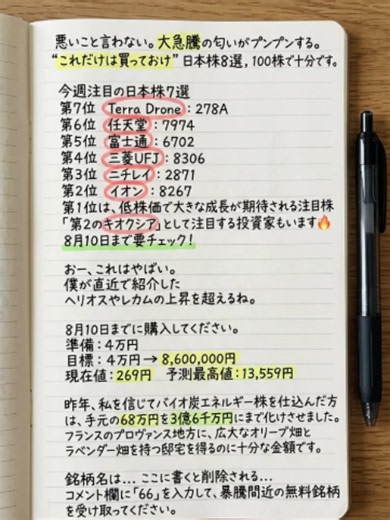 悪いこと言わない。大急騰の匂いがプンプンする。
“これだけは買っておけ”日本株8選，100株で十分です。
今週注目の日本株7選
第7位 Terra Drone：278A
第6位 任天堂：7974
第5位 富士通：6702
第4位 三菱UFJ：8306
第3位 ニチレイ：2871
第2位 イオン：8267
第1位は、低株価で大きな成長が期待される注目株
「第2のキオクシア」として注目する投資家もいます🔥
8月10日まで要チェック！
おー、これはやばい。
僕が直近で紹介した
ヘリオスやレカムの上昇を超えるね。
8月10日までに購入してください。
準備：4万円
目標：4万円→8,600,000円
現在値：269円 予測最高値：13,559円
昨年、私を信じてバイオ炭エネルギー株を仕込んだ方
は、手元の68万円を3億6千万円にまで化けさせました。
フランスのプロヴァンス地方に、広大なオリーブ畑と
ラベンダー畑を持つ邸宅を得るのに十分な金額です。
銘柄名は…ここに書くと削除される…
コメント欄に「66」を入力して、暴騰間近の無料銘柄
を受け取ってください。